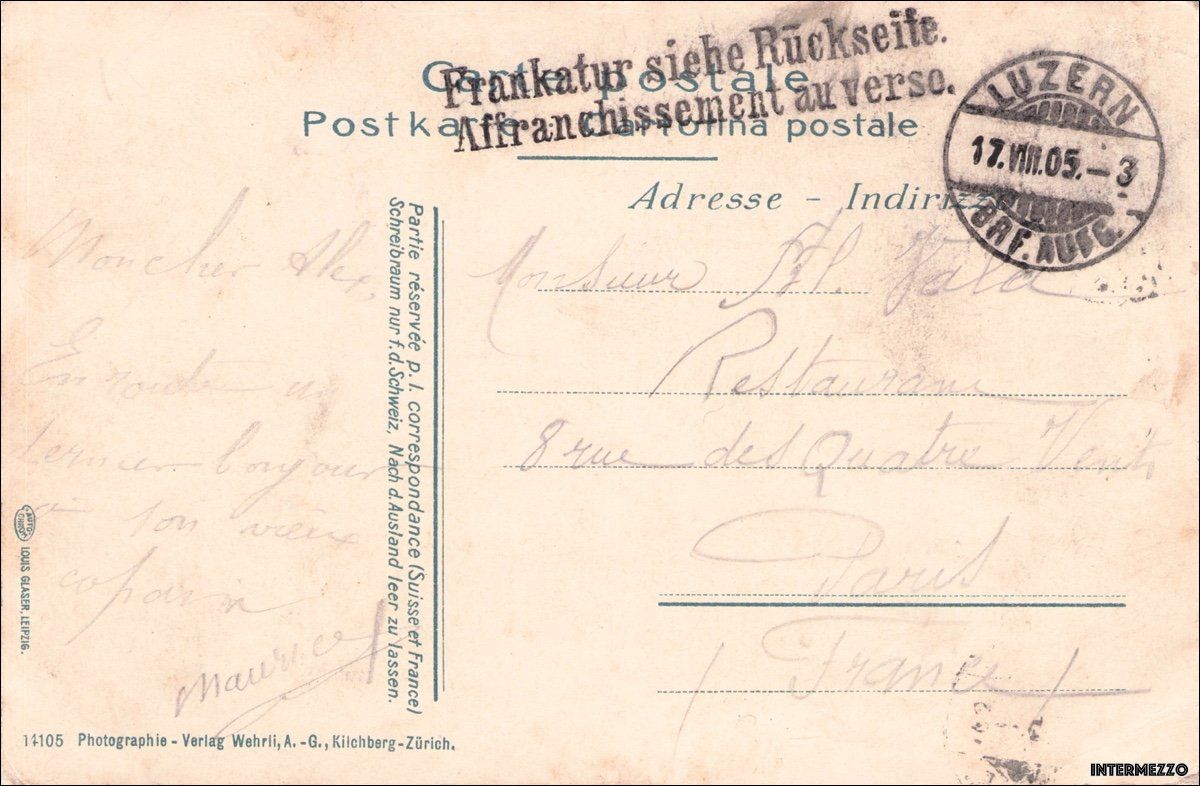 Frankatur siehe Rückseite.
Affranchissement au verso.
Carte postale
Postkarte - Cartolina postale
LUZERN
17.VIII.05.-3
BRF. AUFG.
Adresse - Indirizzo
Partie réservée p. l. correspondance (Suisse et France)
Schreibraum nur f. d. Schweiz, Nach d. Ausland leer zu lassen.
Mon cher Alex,
En route un
dernier bonjour
à ton vieux
copain.
Maurice
Monsieur Al.
Restaurant
8 rue des Quatre Vents
Paris
France
AUTO-CHROM
LOUIS GLASER, LEIPZIG.
14105 Photographie - Verlag Wehrli, A. -G., Kilchberg-Zürich.
INTERMEZZO